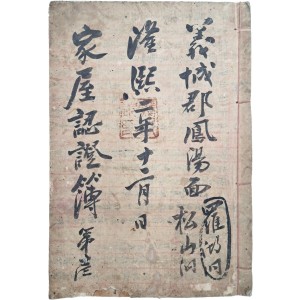 義城郡鳳陽面 松山洞
羅湖洞
隆熙二年十二月 日
家屋認證簿 第三